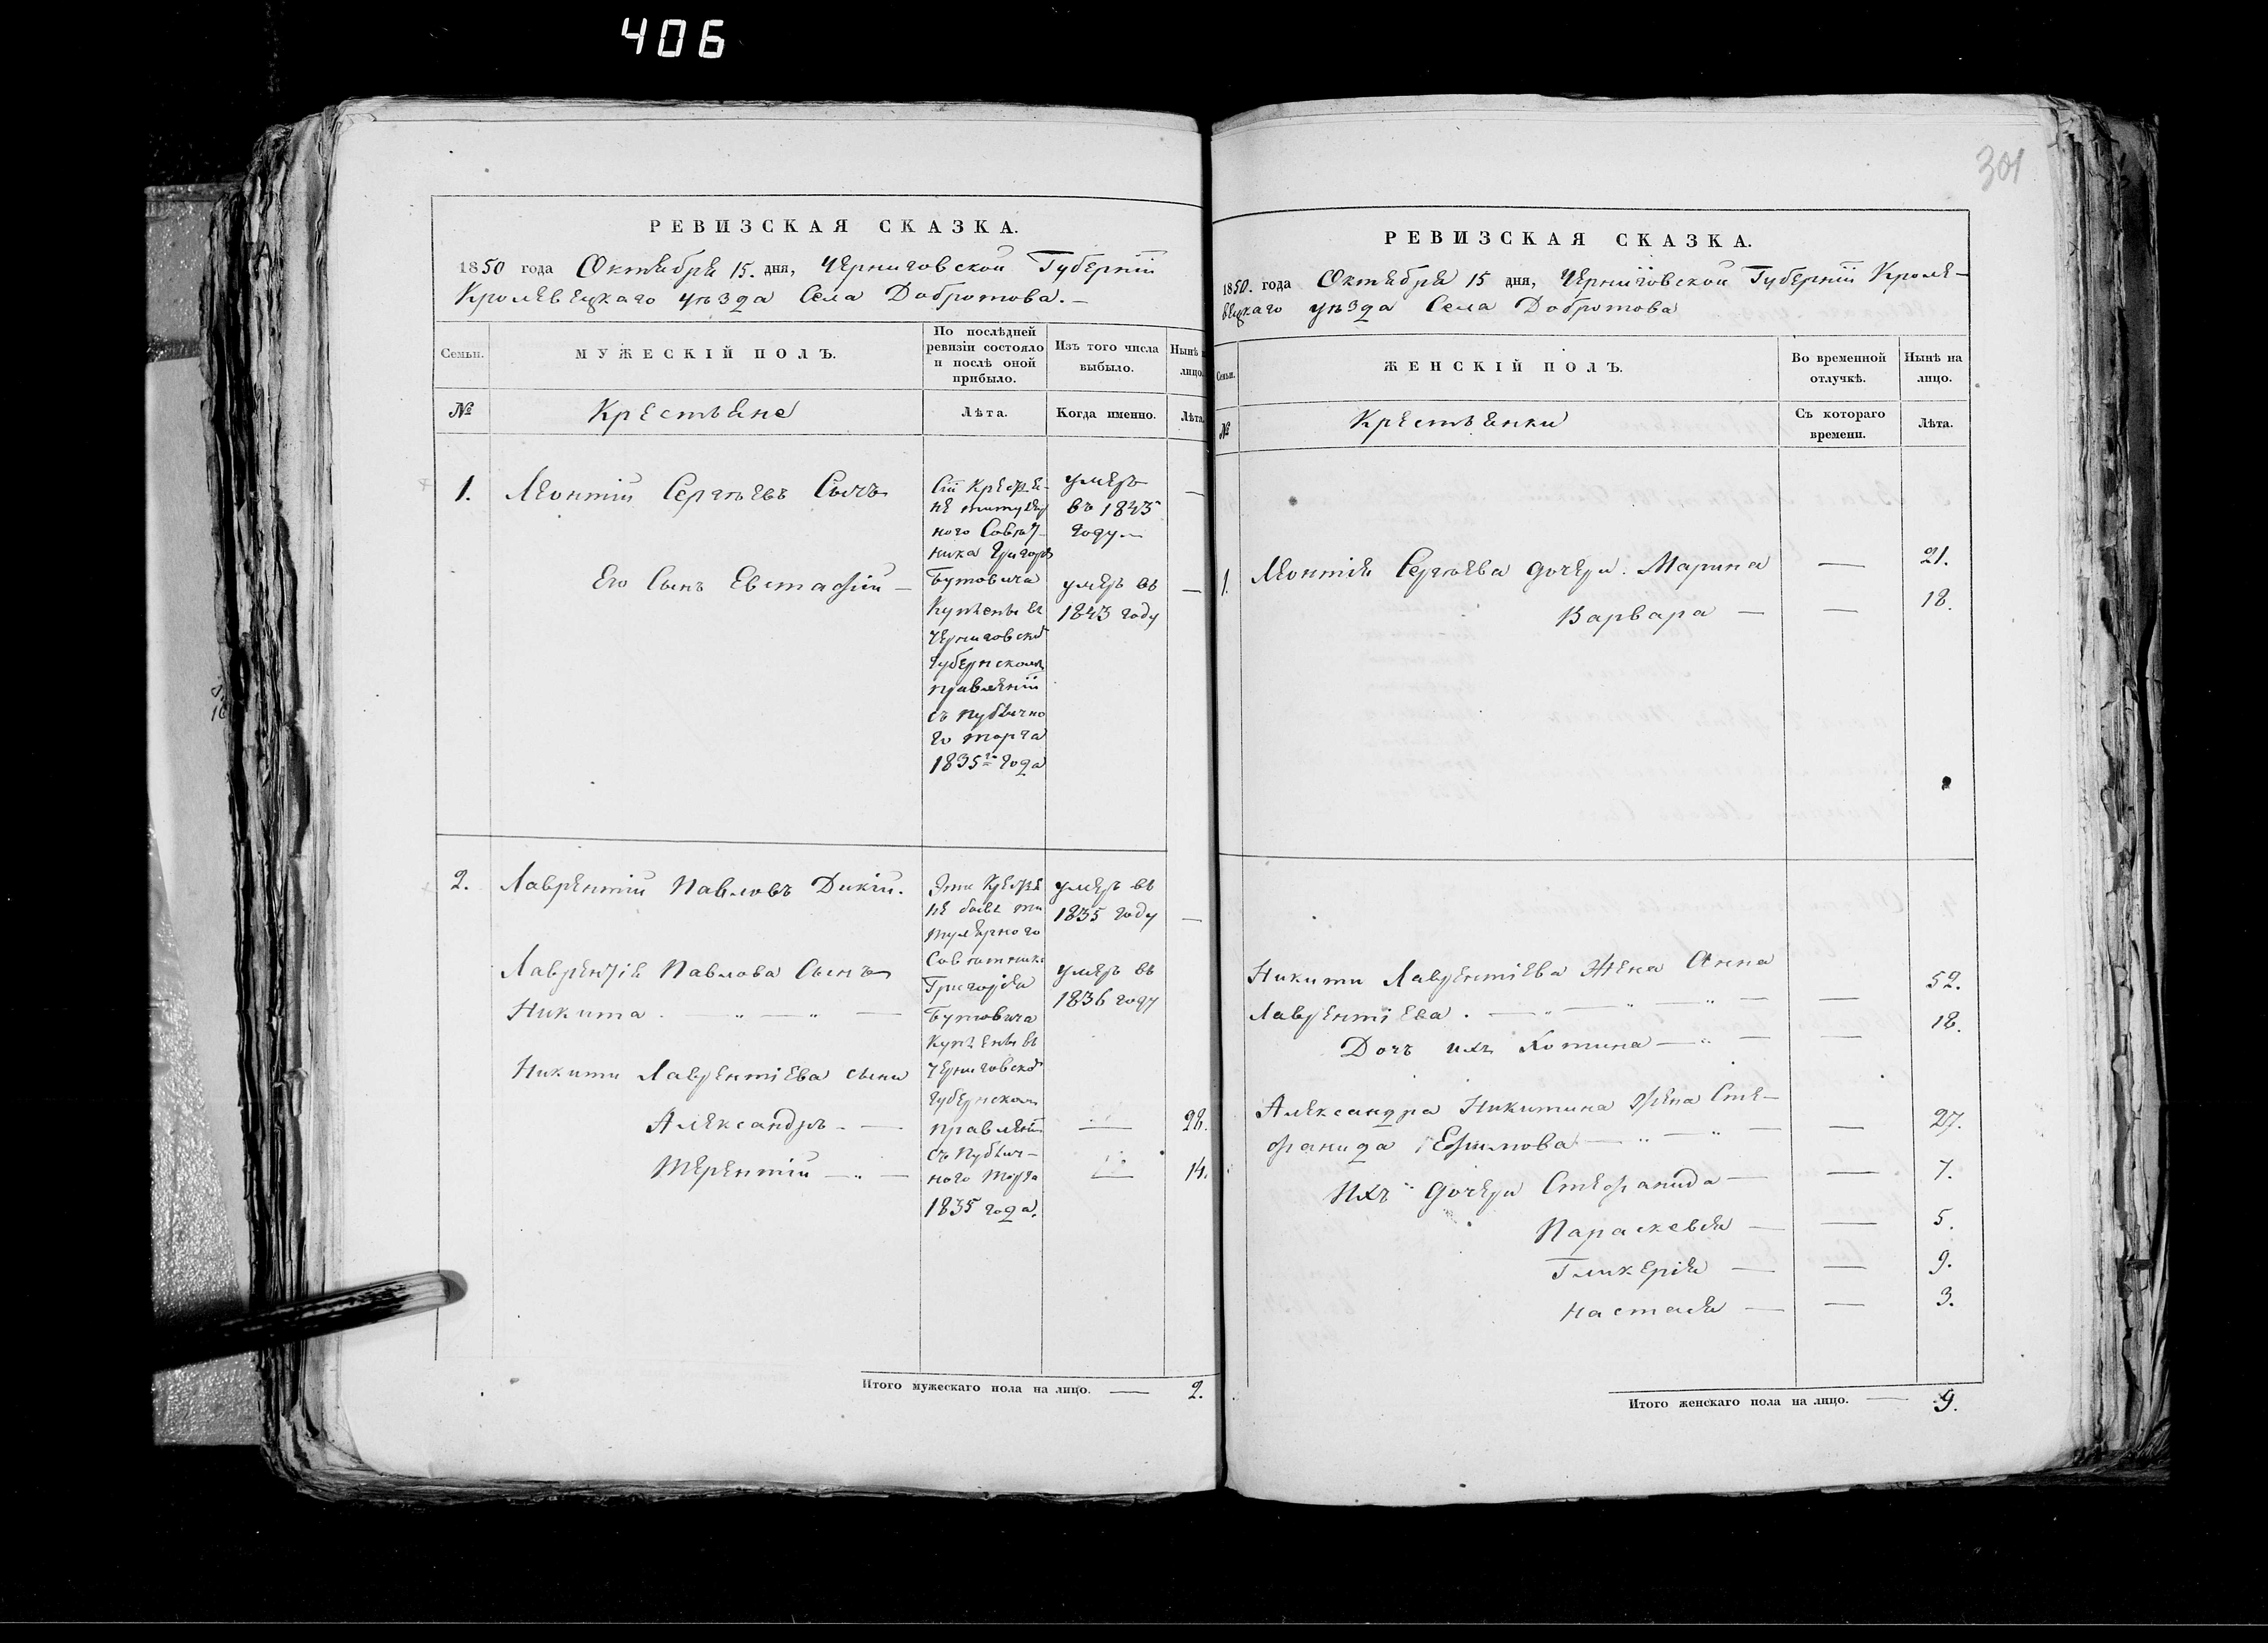 406
РЕВИЗСКАЯ СКАЗКА.
1850 года Октября 15. дня, Черниговской Губерніи
Кролевецкаго уѣзда Села Добротова.
Семьи.
МУЖЕСКІЙ ПОЛЪ.
По послѣдней ревизіи состояло и послѣ оной прибыло.
Изъ того числа выбыло.
Нынѣ на лицо.
№
Крестьяне
Лѣта.
Когда именно.
Лѣта.
1.
Леонтій Сергѣевъ Сычъ
Сіи Крестья-
не титуляр
ного Совѣт-
ника Григорія
Бутовича
Куплены въ
Черниговском
Губернскомъ
правленіи
съ публично
го торга
1835го года
умеръ
въ 1845
году. —
—
Его Сынъ Евстафій —
умеръ въ
1843 году
—
2.
Лаврентій Павловъ Дикій.
Эти Крестья
не бывш ти
тулярного
Совѣтника
Григорія
Бутовича
Куплены въ
Черниговском
Губернскомъ
правленіи
съ публич-
ного торга
1835 года.
умеръ въ
1835 году
—
Лаврентія Павлова Сынъ
Никита
умеръ въ
1836 году
Никити Лаврентіева сыни
Александръ — — 28.
Терентій — — 14.
Итого мужескаго пола на лицо. — 2.
301
РЕВИЗСКАЯ СКАЗКА.
1850. года Октября 15 дня, Черниговской Губерніи Кроле-
вецкаго уѣзда Села Добротова
Семьи.
ЖЕНСКІЙ ПОЛЪ.
Во временной отлучкѣ.
Нынѣ на лицо.
№
Крестьянки
Съ котораго времени.
Лѣта.
1. Леонтія Сергѣева дочери. Марина — 21.
Варвара — — 18.
Никити Лаврентіева Жена Анна
Лаврентіева — 52.
Дочъ ихъ Хотина — — 18.
Александра Никитина жена Сте-
фанида Ефимова — — 27.
Ихъ дочери Стефанида — — 7.
Параскевія — — 5.
Гликерія — — 9.
Настасія — — 3.
Итого женскаго пола на лицо. — 9.